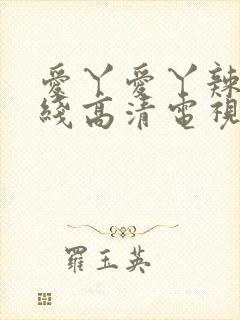 愛丫愛丫辣
綫高清電視
羅玉英